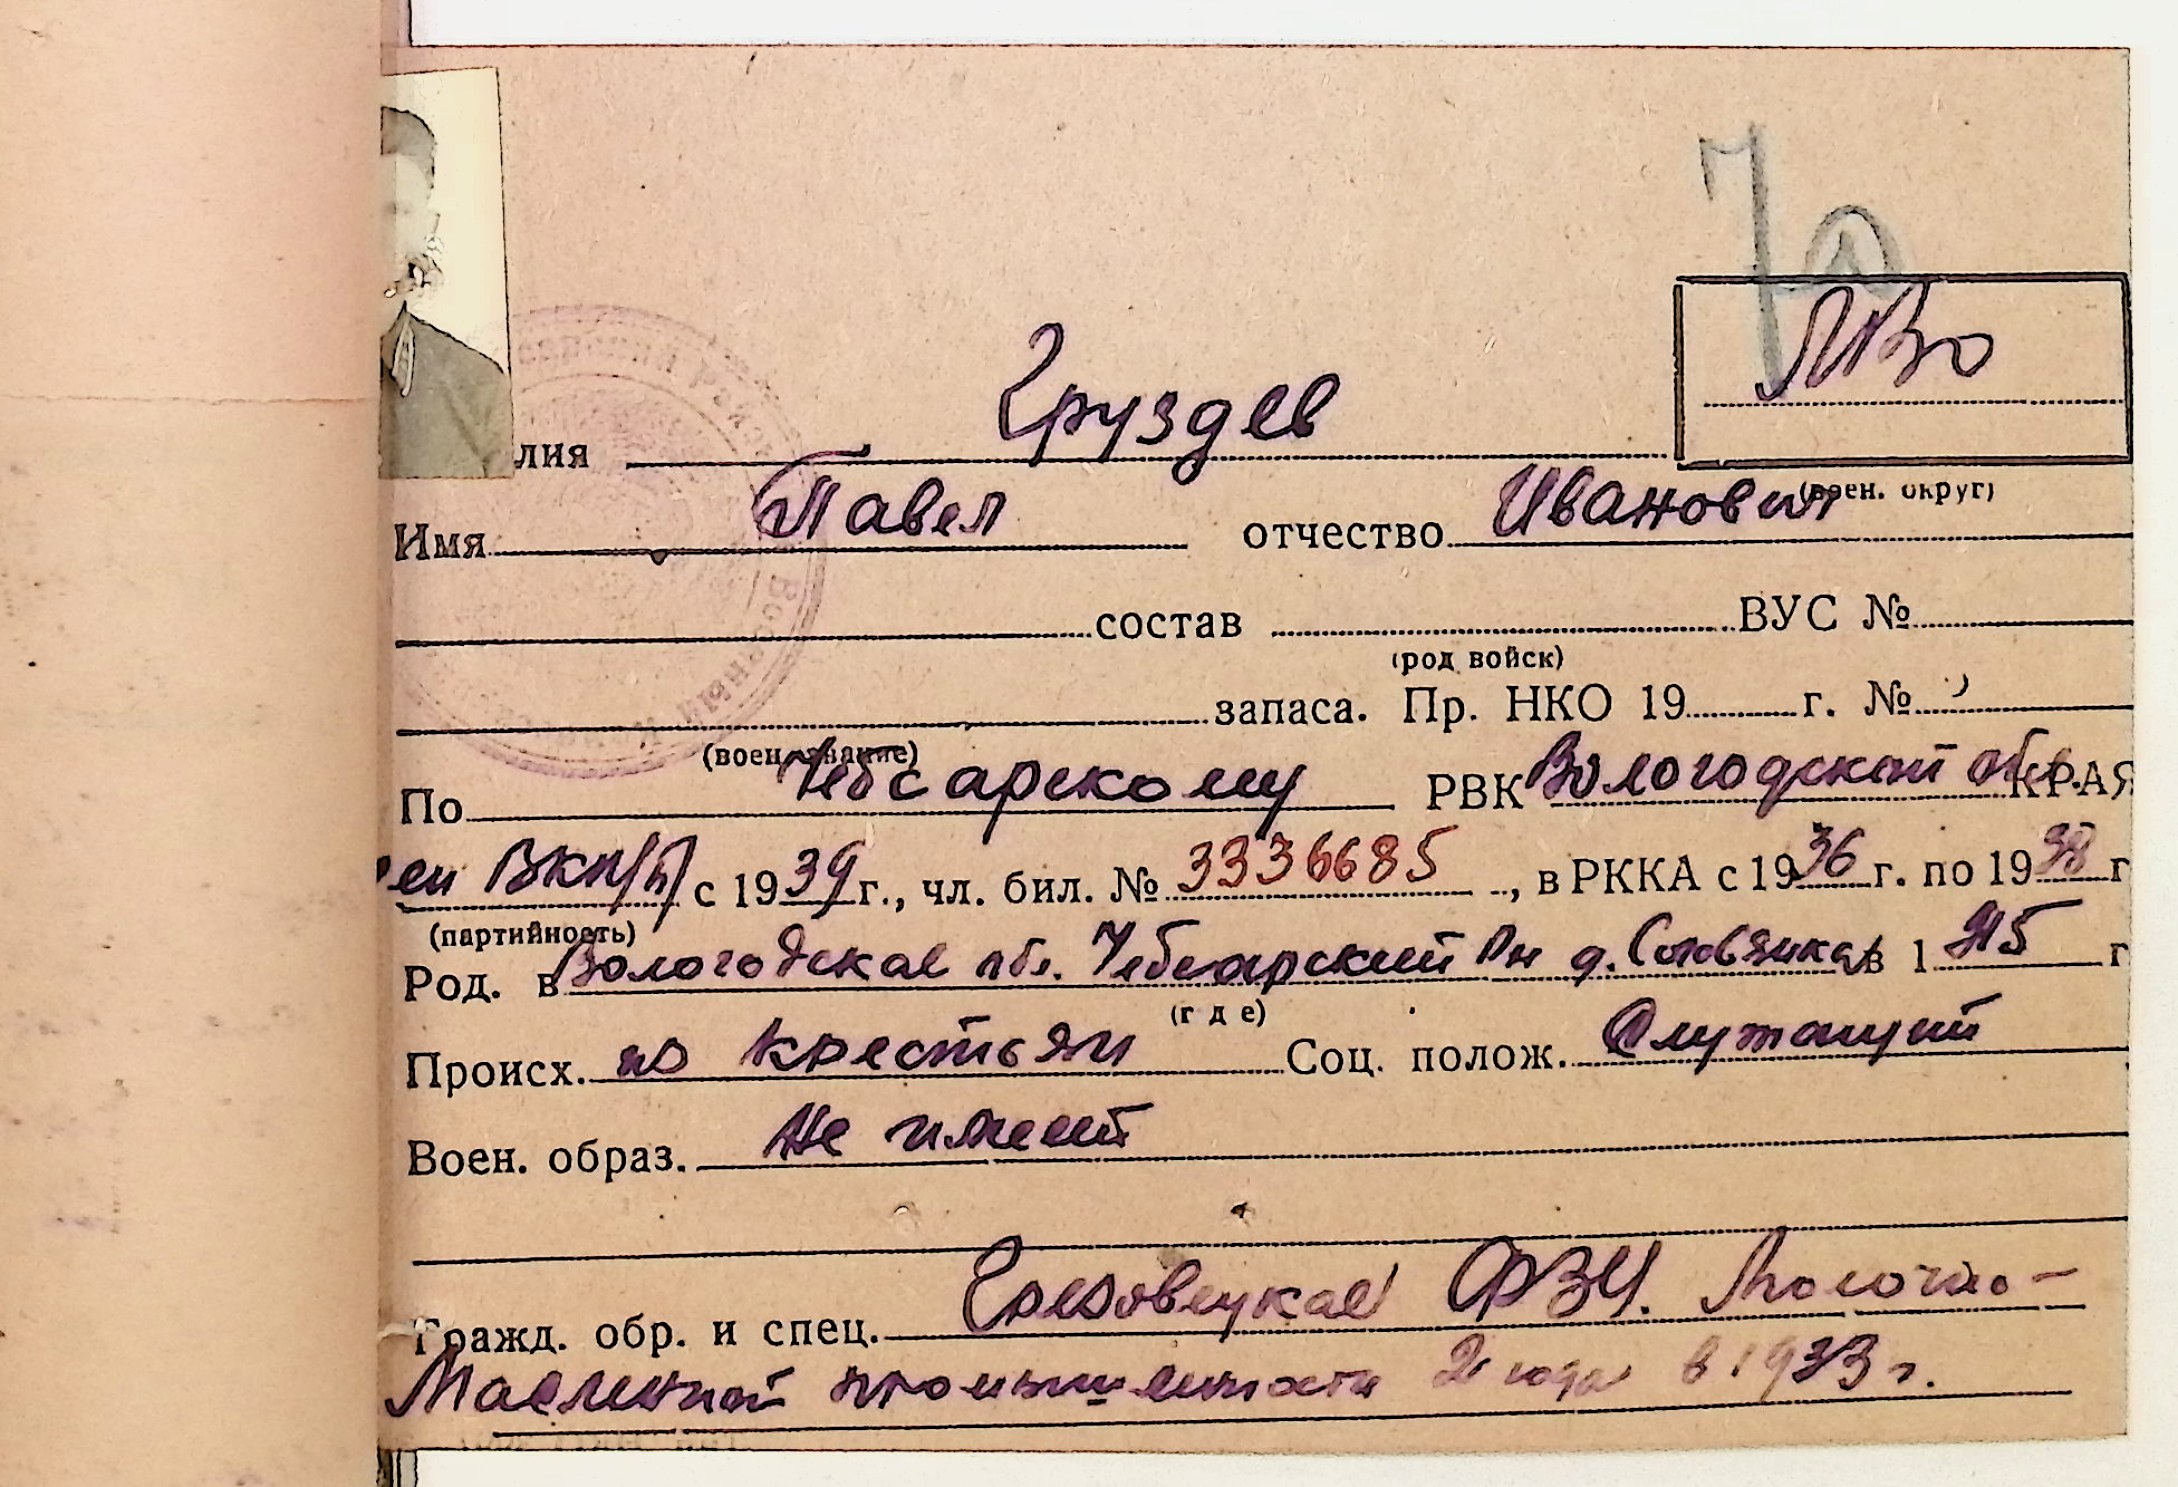 7а
ЛВО
(воен. округ)
лия Груздев
Имя Павел отчество Иванович
состав ВУС №
(род войск)
запаса. Пр. НКО 19 г. №
(воен. звание)
По Чебсарскому РВК Вологодской обл. КРАЯ
ен ВКП/б/ с 1939 г., чл. бил. № 3336685, в РККА с 1936 г. по 1938 г
(партийность)
Род. в Вологодская обл. Чебсарский Рн д. в 1915 г
(где)
Происх. из крестьян Соц. полож. Служащий
Воен. образ. Не имеет
Гражд. обр. и спец. Грязовецкая ФЗУ. Молочно-
Маслянной промышленности 2 года в 1933 г.